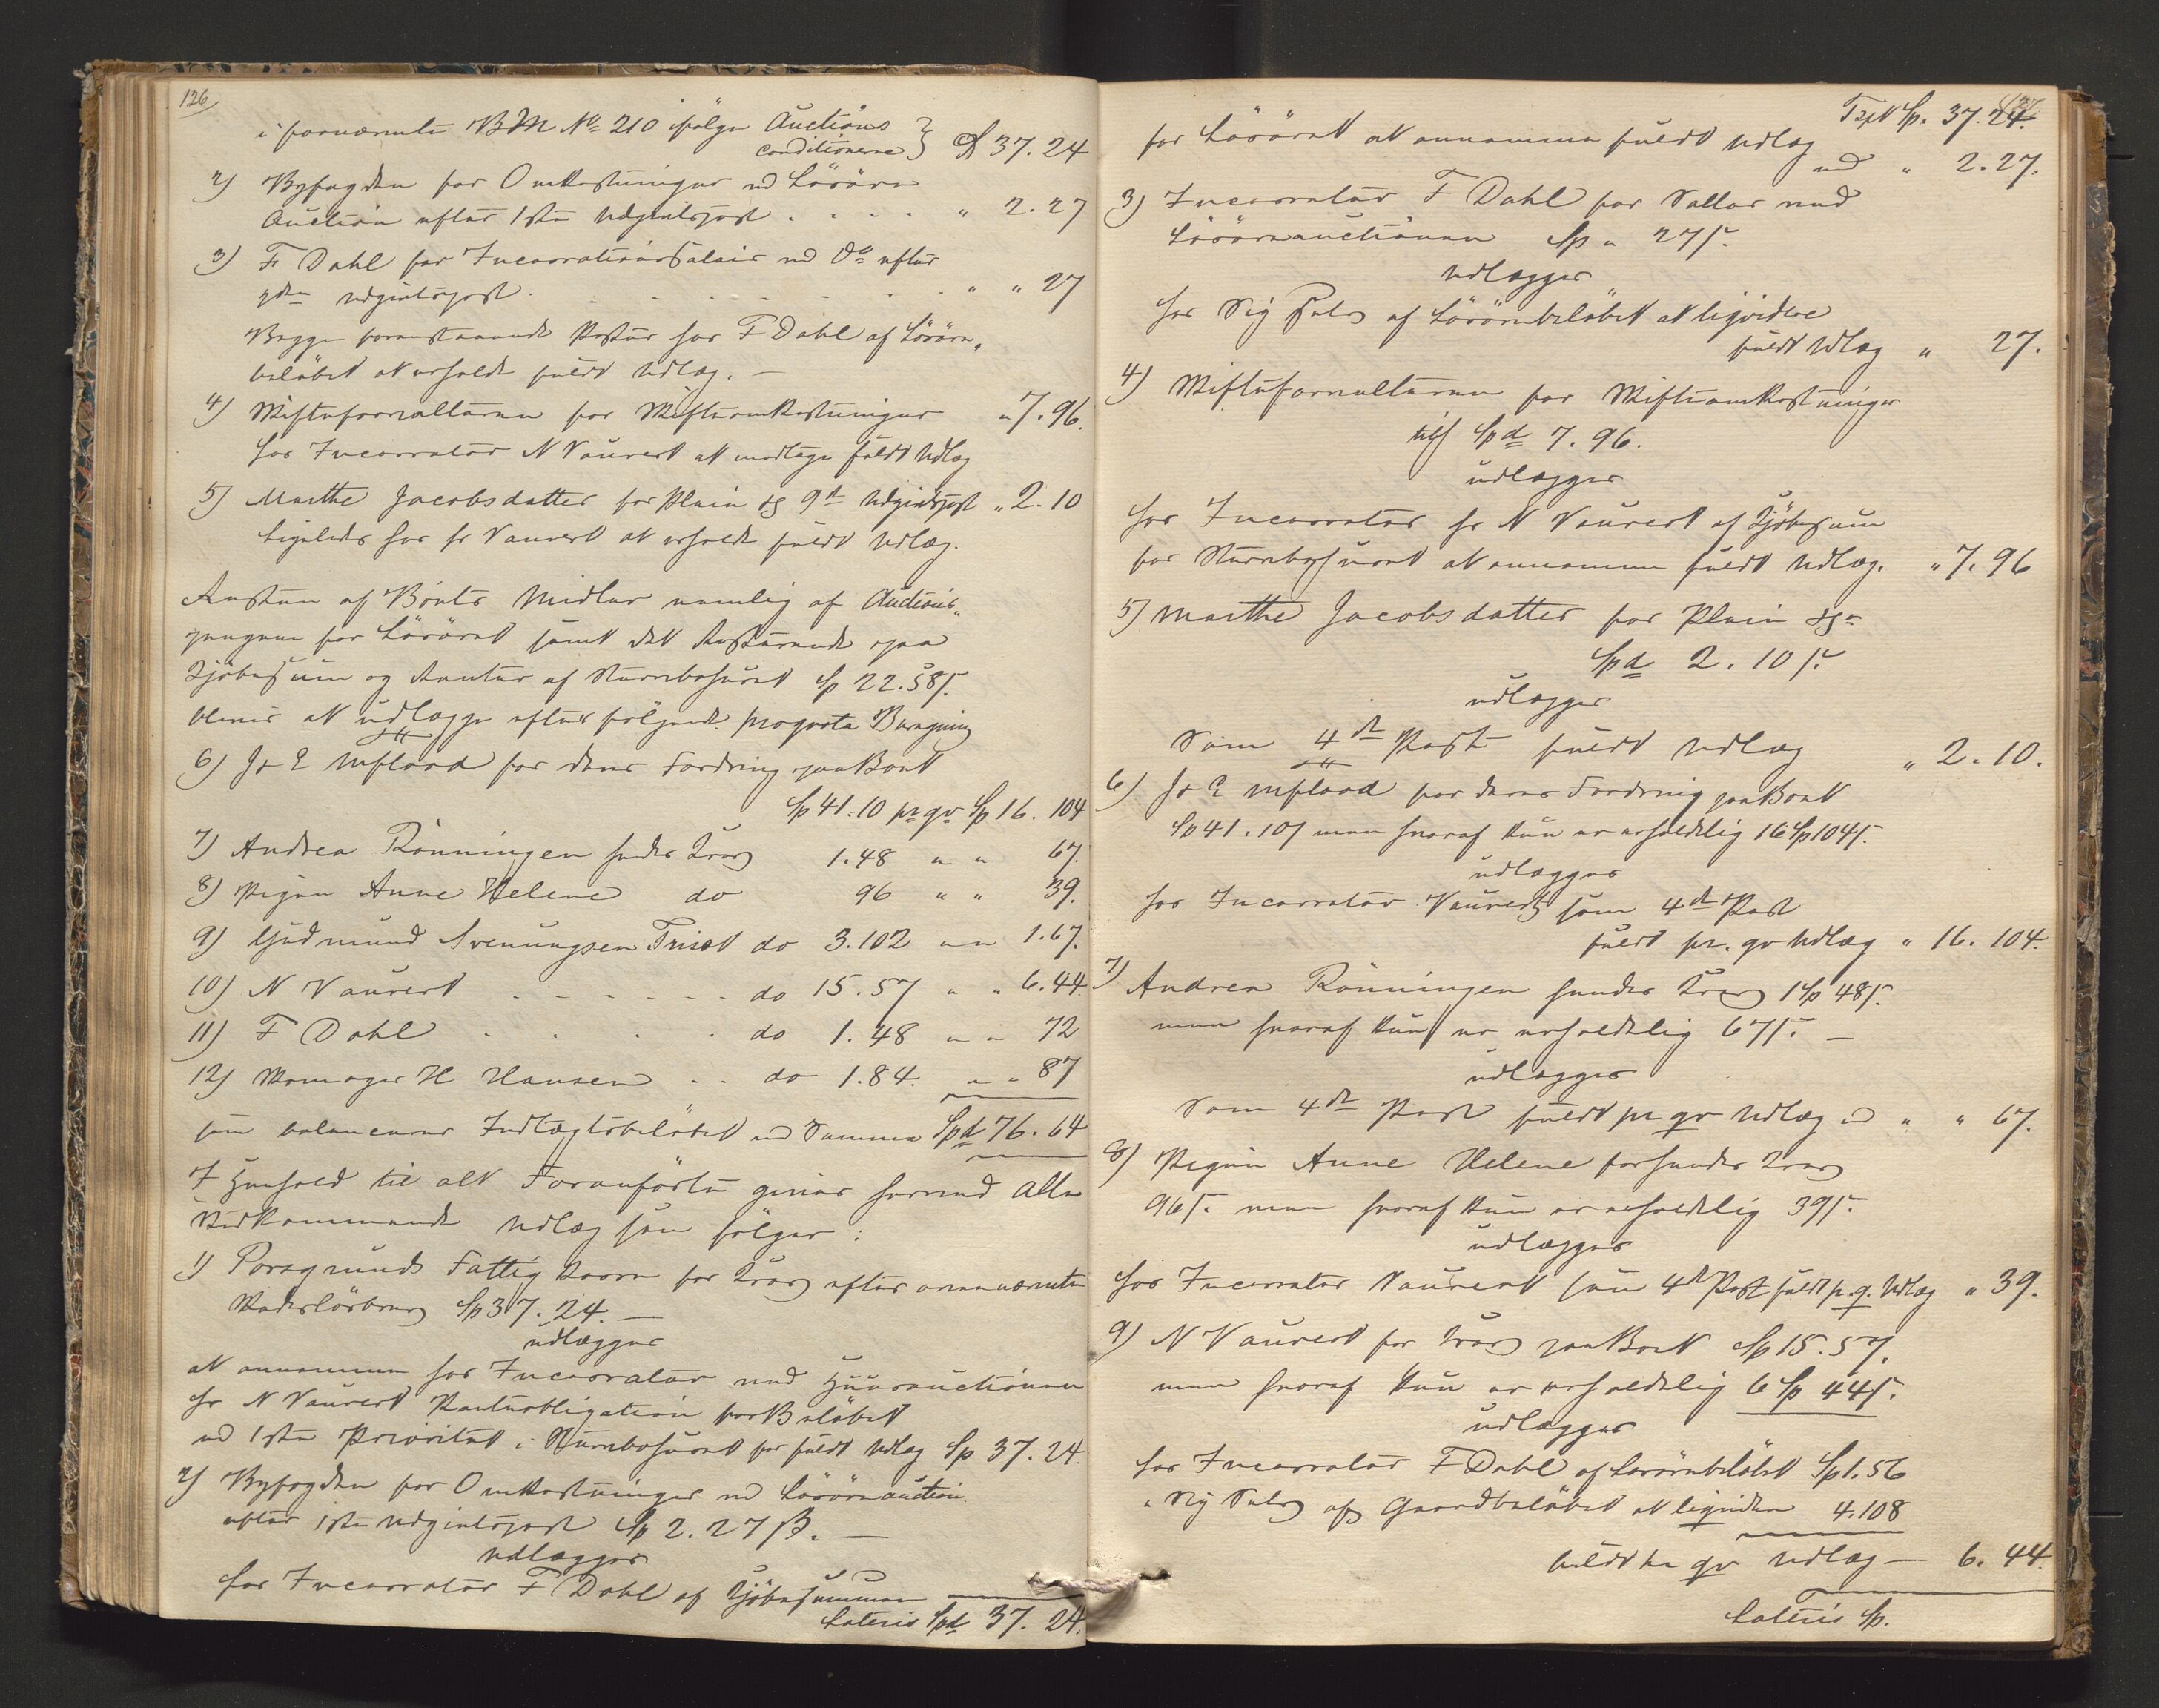 126
i fornævnte BM No 210 ifölge Auctions
conditionerne } Sp 37.24
2) Byfogden for Omkostninger ved Lösöre
Auction efter 1ste Udgiftspost . . . . " 2.27
3) F Dahl for Incassations Salair ved Do efter
2den Udgiftspost . . . . . . . " " 27
Begge foranstaaende Poster hos F Dahl af Lösöre
belöbet at erholde fuldt Udlæg. —
4) Skifteforvalteren for Skifteomkostninger " 7.96.
hos Incassator N Vauvert at modtage fuldt Udlæg
5) Marthe Jacobsdatter for Pleie og 9de Udgiftspost " 2.10
Ligeledes hos hr Vauvert at erholde fuldt Udlæg.
Resten af Boets Midler nemlig af Auctions-
pengene for Lösöret samt det Resterende paa
Kjöbesum og Renter af Stervbohuset Sp 22.58 ß.
bliver at udlægge efter fölgende proqvota Beregning
6) J & E Mfland for deres Fordring paa Boet
Sp 41.10 pr qv Sp 16. 104
7) Andrea Rönningen hendes Krav 1.48 " " 67.
8) Pigen Anne Helene do 96 " " 39.
9) Gudmund Svenungsen Triset do 3.102 " " 1.67.
10) N Vauvert . - - - - - - do 15.57 " " 6.44.
11) F Dahl . . . . do 1.48 " " 72
12) Skomager H Hansen . . do 1.84. " " 87
som balancerer Indtægtsbelöbet ved Summa Spd 76.64
I Henhold til alt Foranförte gives herved Alle
Vedkommende Udlæg som fölger:
1) Porsgrunds Fattigkasse for Krav efter ovennævnte
Sp 37.24. —
udlægges
at annamme hos Incassator ved Huusauctionen
Hr N Vauvert Panteobligation for Belöbet
med 1ste Prioritet i Stervbohuset for fuldt Udlæg Sp 37.24.
2) Byfogden for Omkostninger ved Lösöreauction
efter 1ste Udgiftspost Sp 2.27 ß. —
udlægges
hos Incassator F Dahl af Kjöbesummen
Lateris Spd 37. 24.
127.
Trspt Sp. 37.24.
for Lösöret at annamme fuldt Udlæg
med " 2.27.
3) Incassator F Dahl for Sallar ved
Lösöreauctionen Sp " 27 ß.
udlægges
hos Sig Selv af Lösörebelöbet at liqvidere
fuldt Udlæg " 27.
4) Skifteforvalteren for Skifteomkostninger
tils Spd 7.96.
udlægges
hos Incassator hr N Vauvert af Kjöbesum
for Stervbohuset at annamme fuldt Udlæg. " 7.96
5) Marthe Jacobsdatter for Pleie &c
Spd 2.10 ß.
udlægges
Som 4de Post fuldt Udlæg " 2.10.
6) J & E Mfland for deres Fordring paa Boet
Sp 41.10 ß men hvoraf kun er erholdelig 16 Sp 104 ß.
udlægges
hos Incassator Vauvert som 4de Post
fuldt pr. qv Udlæg " 16. 104.
7) Andrea Rönningen hendes Krav 1 Sp 48 ß.
men hvoraf kun er erholdelig 67 ß. —
udlægges
Som 4de Post fuldt pr qv Udlæg " " 67.
8) Pigen Anne Helene for hendes Krav
96 ß. men hvoraf kun er erholdelig 39 ß.
udlægges
hos Incassator Vauvert som 4de Post fuldt p.q. Udlæg " 39.
9) N Vauvert for Krav paa Boet Sp 15.57.
men hvoraf kun er erholdelig 6 Sp 44 ß.
udlægges
hos Incassator F Dahl af Lösörebelöbet Sp 1.56
" Sig Selv af Gaardbelöbet at liqvidere 4.108
fuldt pr qv Udlæg — 6. 44.
Lateris Sp.